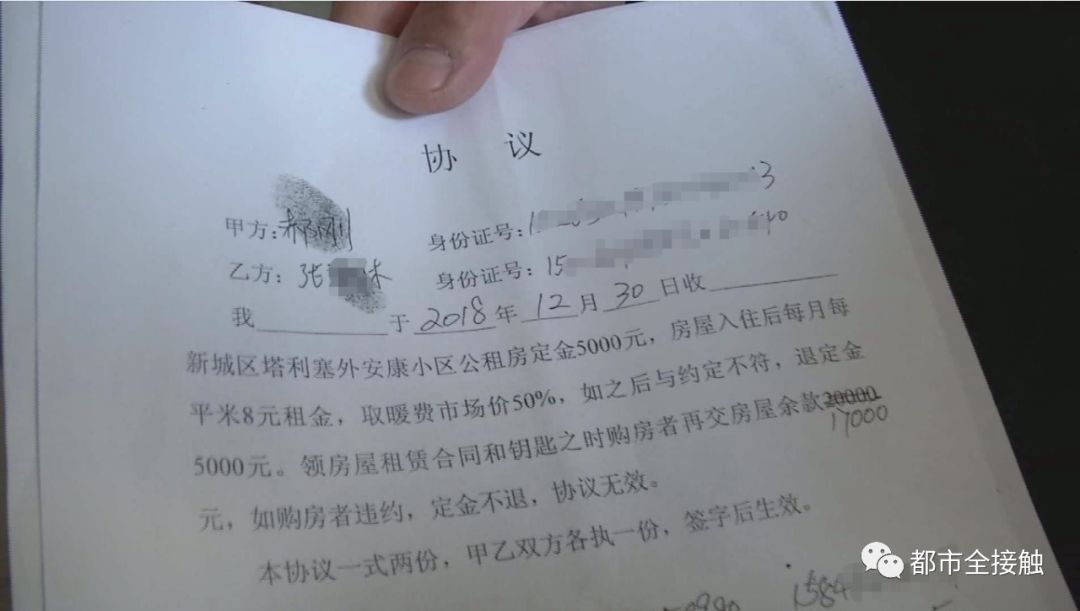 协 议
甲方:郝刚 身份证号:1 3
乙方:张 身份证号:15 40
我 于 2018 年 12 月 30 日收
新城区塔利塞外安康小区公租房定金5000元，房屋入住后每月每
平米8元租金，取暖费市场价50%，如之后与约定不符，退定金
5000元。领房屋租赁合同和钥匙之时购房者再交房屋余款20000
17000
元，如购房者违约，定金不退，协议无效。
本协议一式两份，甲乙双方各执一份，签字后生效。
1584
都市全接触